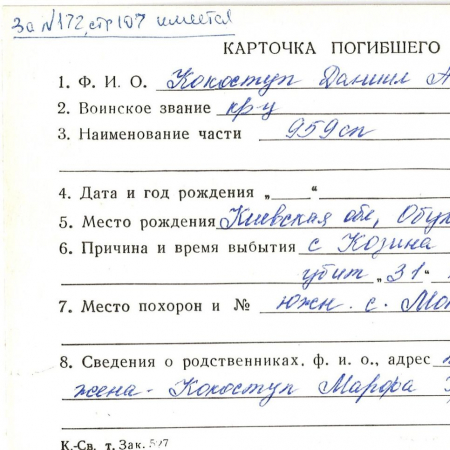 За №172, стр 107 имеется
КАРТОЧКА ПОГИБШЕГО
1. Ф. И. О. Кокоступ Даниил А
2. Воинское звание кр-ц
3. Наименование части 959 сп
4. Дата и год рождения „ “
5. Место рождения Киевская обл, Обух
6. Причина и время выбытия с Козина
убит „31“
7. Место похорон и № южн. с. Мон
8. Сведения о родственниках, ф. и. о., адрес
жена - Кокоступ Марфа
К.-Св. т. Зак. 527